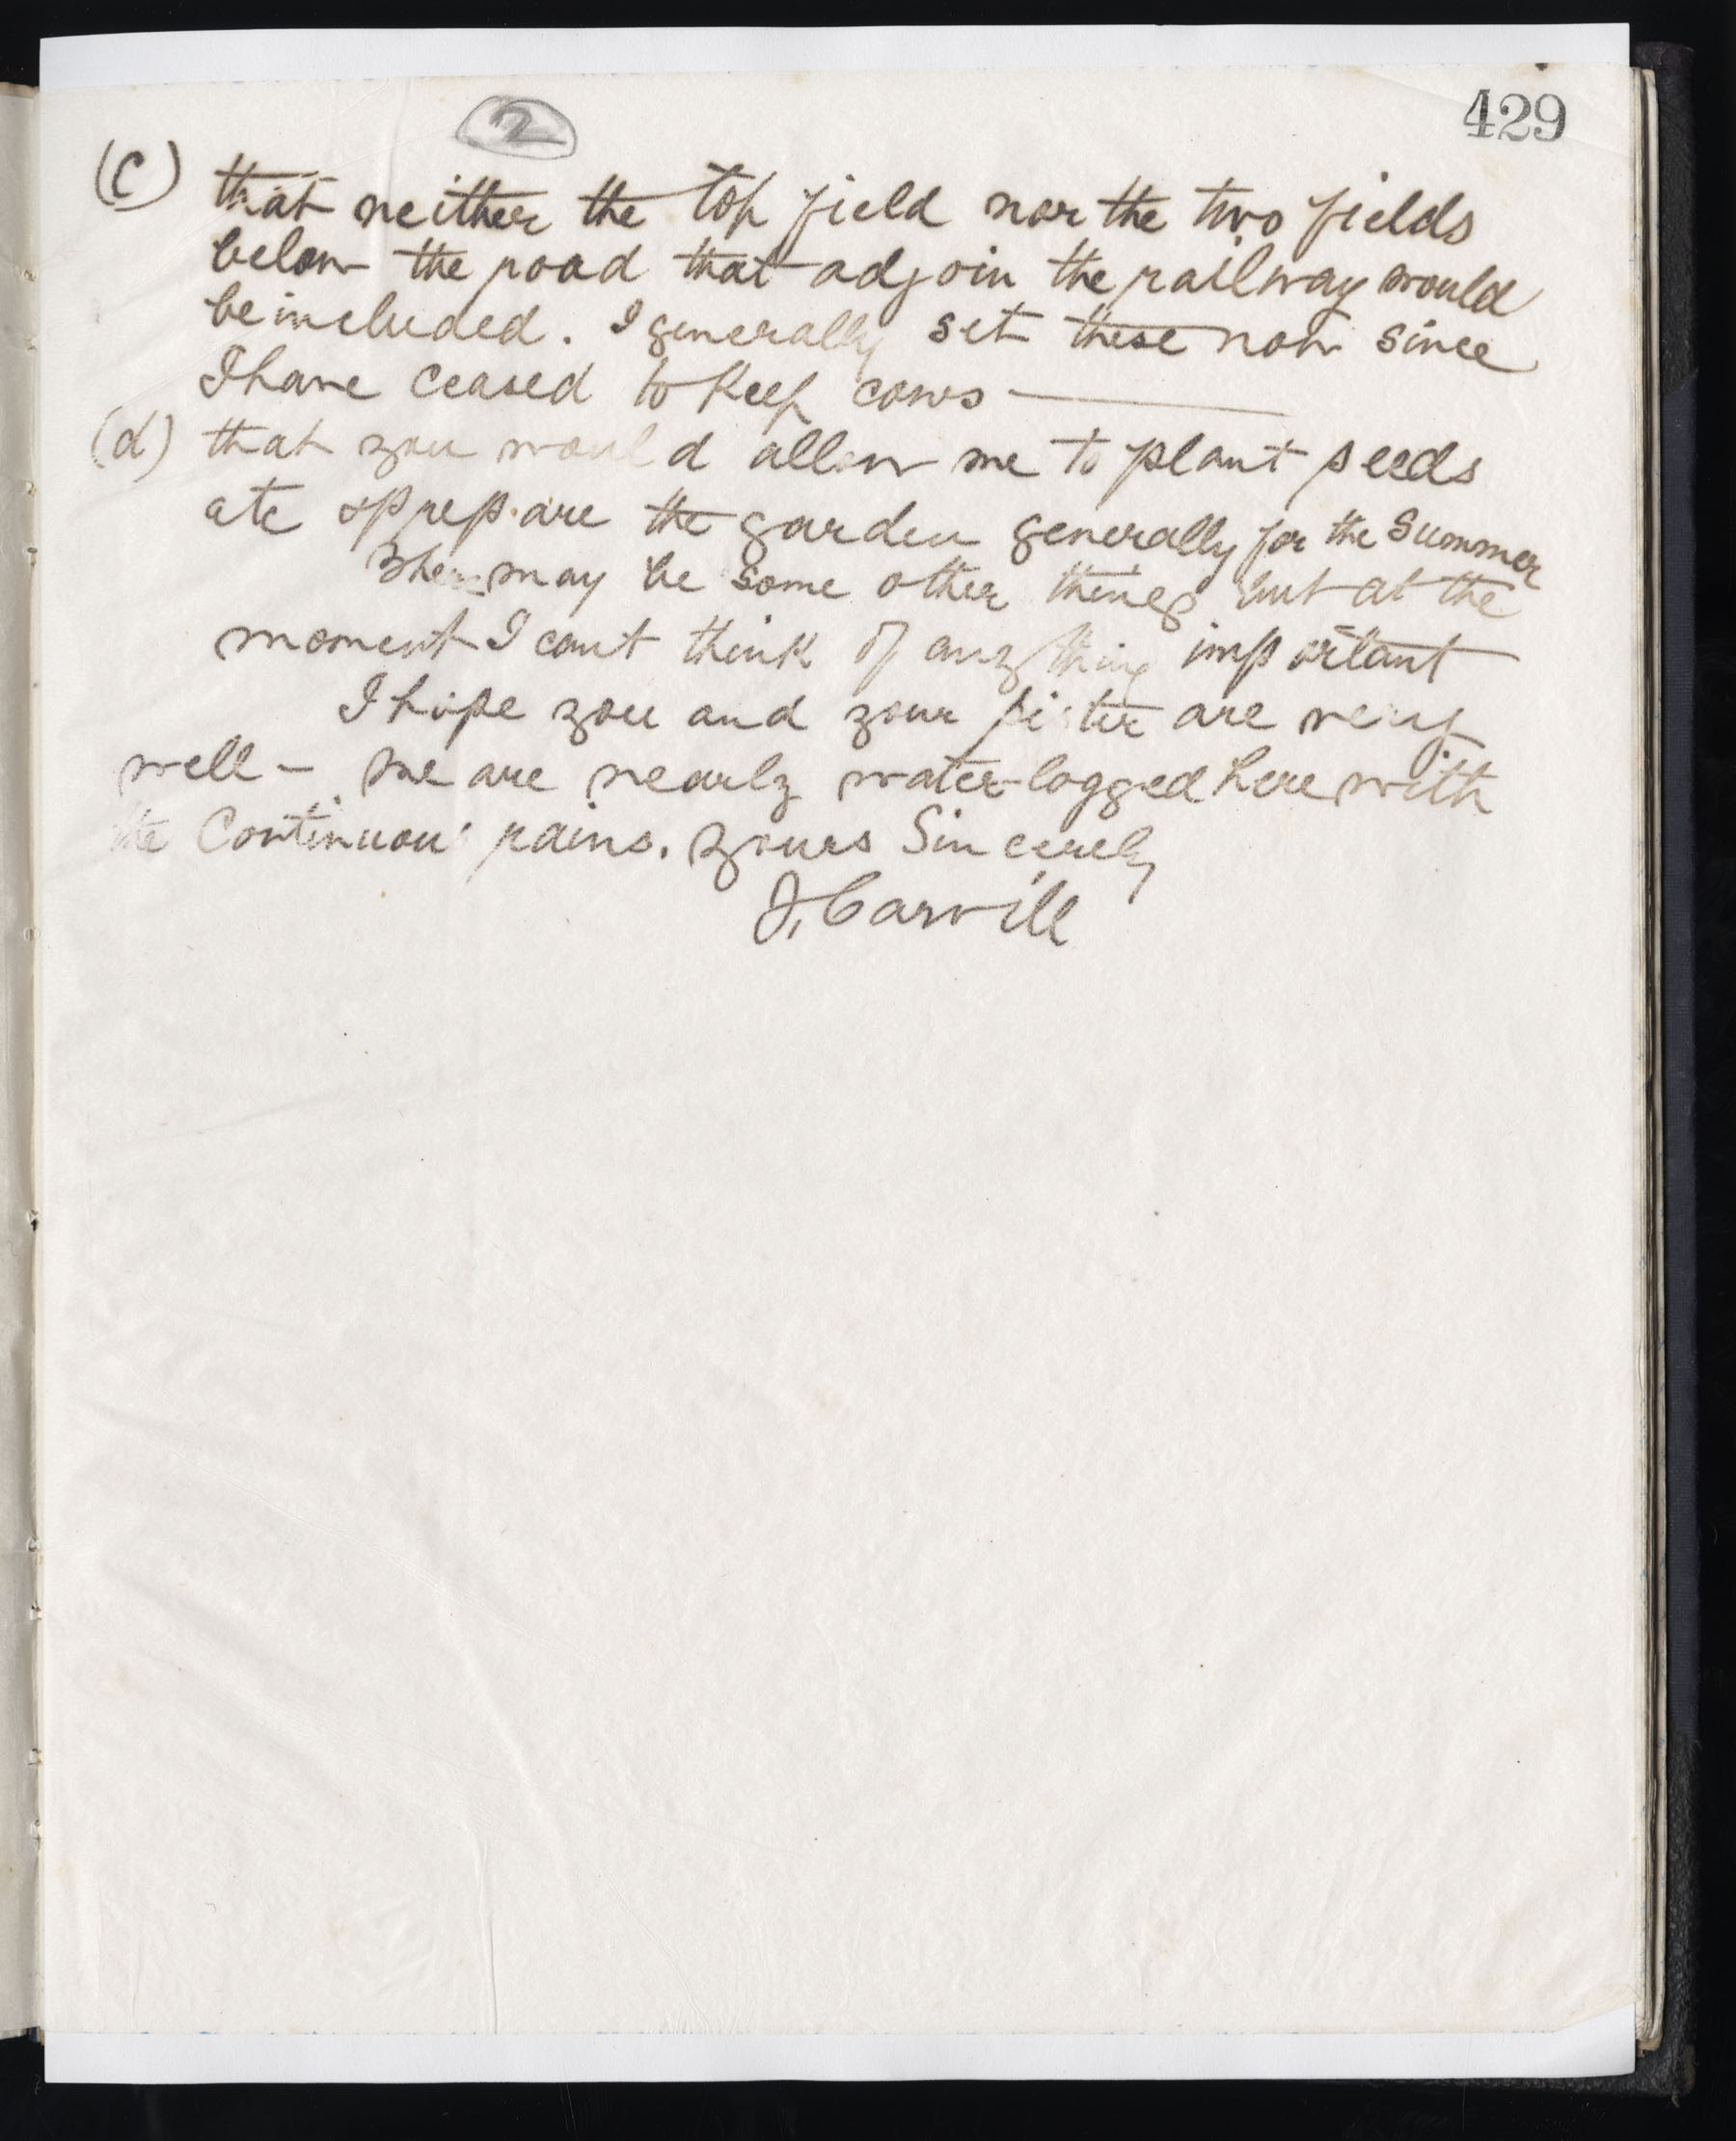 429
2
(C) that neither the top field nor the two fields
below the road that adjoin the railway would
be included. I generally set these now since
I have ceased to keep cows —
(d) that you would allow me to plant seeds
etc & prepare the garden generally for the Summer
There may be some other things but at the
moment I cant think of anything important
I hope you and your sister are very
well - we are nearly water-logged here with
the Continuous rains. Yours Sincerely
J. Carvill